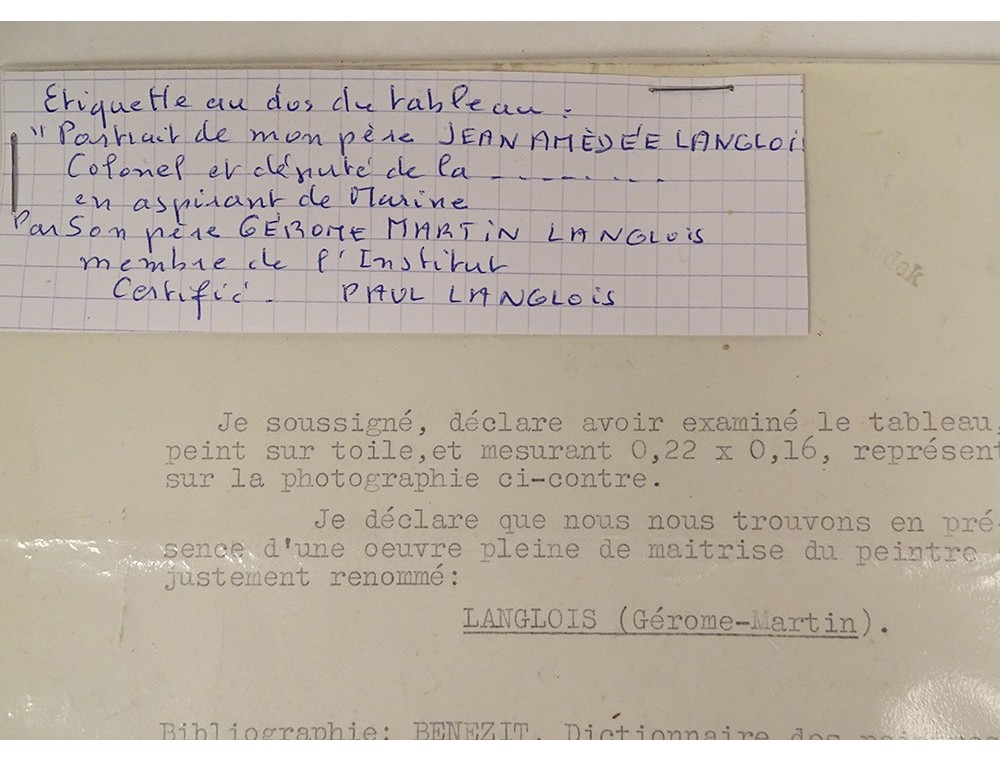 Etiquette au dos du tableau :
"Portrait de mon père JEAN AMÈDÉE LANGLOIS
Colonel et député de la _ _ _ . _ . . .
en aspirant de Marine
Par Son père GÉROME MARTIN LANGLOIS
membre de l'Institut
Certifié. PAUL LANGLOIS
Kodak
Je soussigné, déclare avoir examiné le tableau,
peint sur toile,et mesurant 0,22 x 0,16, représent
sur la photographie ci-contre.
Je déclare que nous nous trouvons en pré-
sence d'une oeuvre pleine de maitrise du peintre
justement renommé:
LANGLOIS (Gérome-Martin).
Bibliographie: BENEZIT. Dictionnaire des peintres